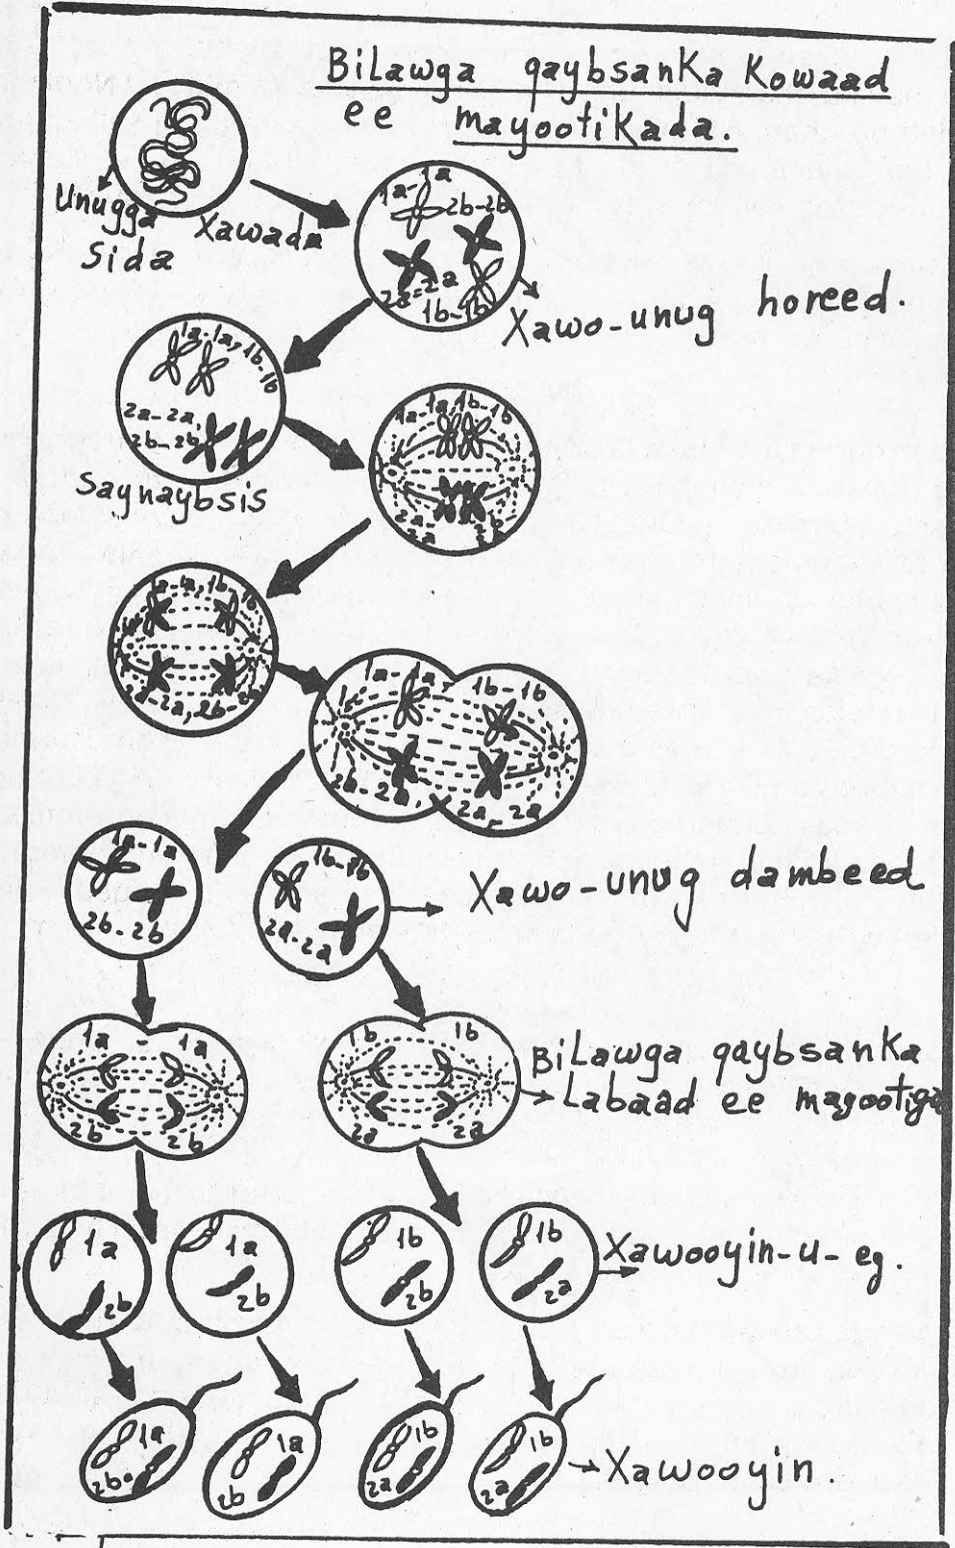 BiLawga qaybsanKa Kowaad
ee mayootiKada.
Unugga Xawada
Sida
1a-1a
2b-2b
2a=2a
1b-1b
Xawo-unug horeed.
1a-1a, 1b-1b
2a-2a,
2b-2b
Saynaybsis
1a-1a, 1b-1b
2a-
2a
2b-
2b
1a-1a, 1b-1b
2a-2a, 2b-2b
1a-1a,
1b-1b
2a-2a,
2a-2a
1a-1a
2b-2b
1b-1b
2a-2a
Xawo-unug dambeed
1a 1a
2b 2b
1b 1b
2a 2a
BiLawga qaybsanKa
Labaad ee mayootiga
1a
2b
1a
2b
1b
2b
1b
2a
Xawooyin-u-eg.
1a
2b
1a
2b
1b
2a
1b
2a
Xawooyin.